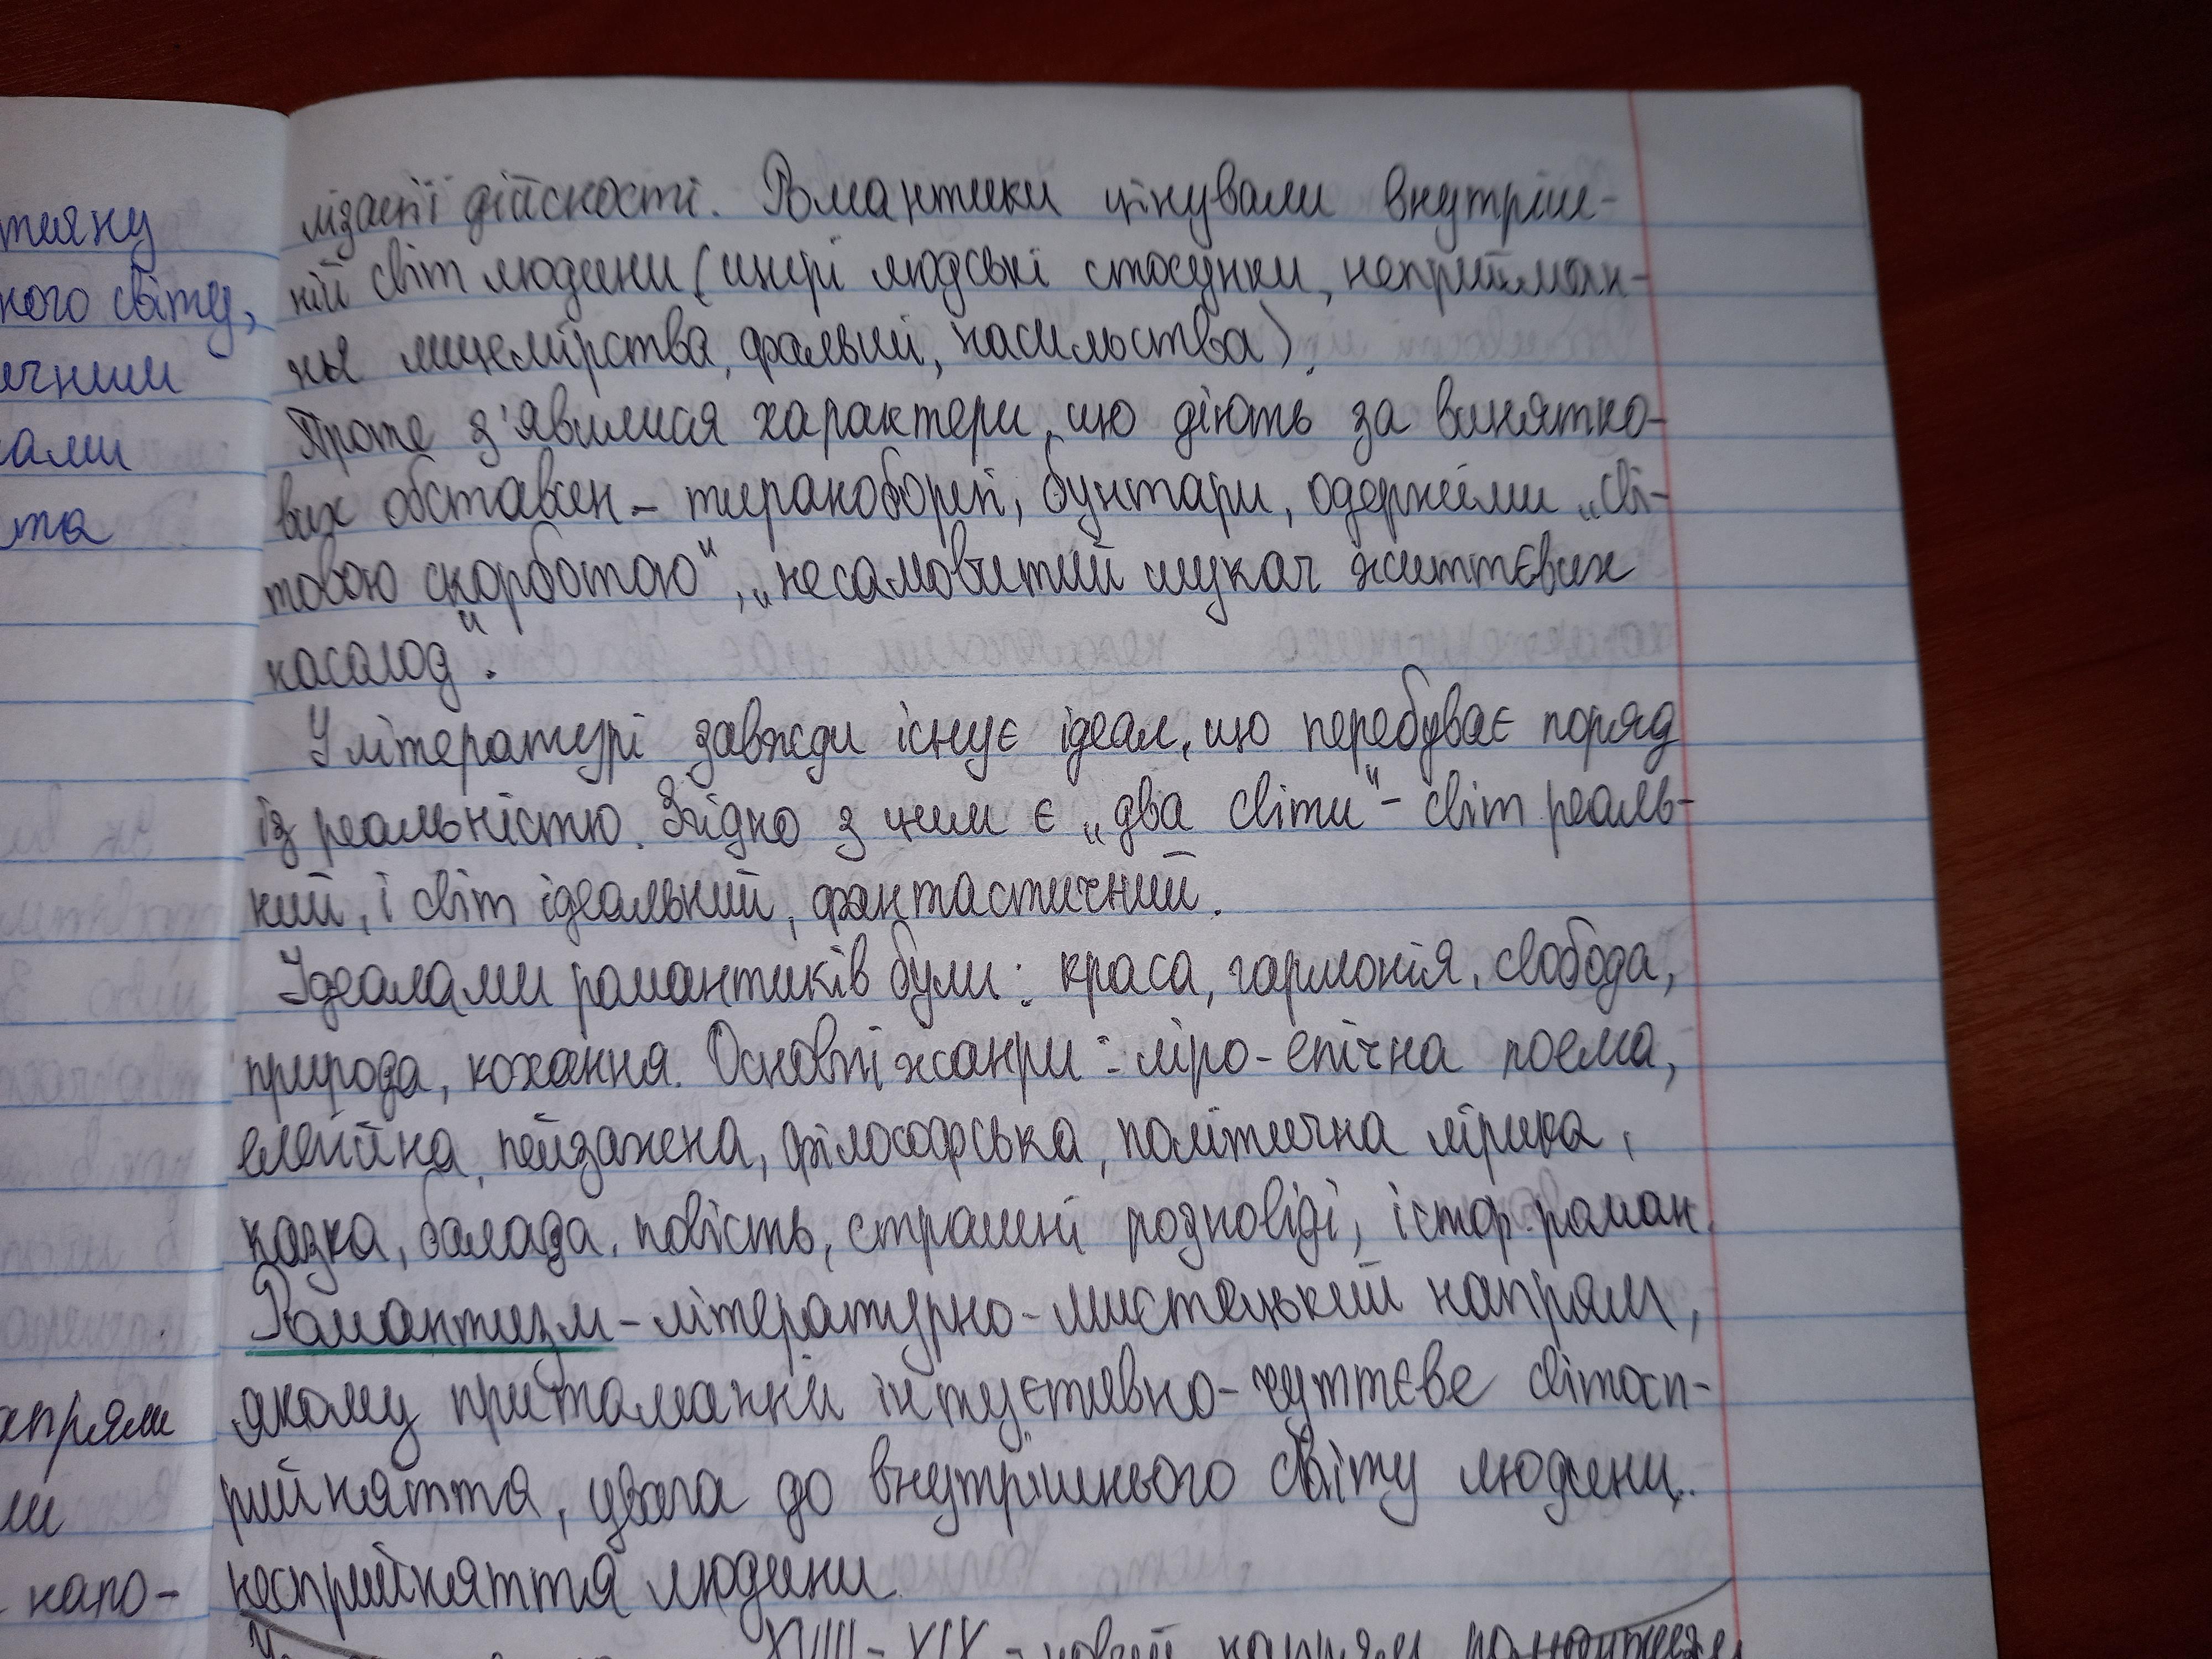 тияну
ного світу,
ичним
ами
та
апрям
ми
напо-
лізації дійсності. Романтики цінували внутріш-
ній світ людини (щирі людські стосунки, неприйман-
ня лицемірства, фальші, насильства).
Проте з'явилися характери, що діють за винятко-
вих обставин - тираноборці, бунтари, одержими „сві-
товою скорботою", „несамовитий шукач життєвих
насолод".
У літературі завжди існує ідеал, що перебуває поряд
із реальністю. Згідно з цим є „два світи" - світ реаль-
ний, і світ ідеальний, фантастичний.
Ідеалами романтиків були: краса, гармонія, свобода,
природа, кохання. Основні жанри: ліро-епічна поема,
елегійна, пейзажена, філософська, політична лірика,
казка, балада, повість, страшні розповіді, істор. роман.
Романтизм - літературно-мистецький напрям,
якому притаманний інтуєтивно-чуттєве світосп-
рийняття, увага до внутрішнього світу людини.
несприйняття людини
XVIII - XIX - новий напрям романтизм